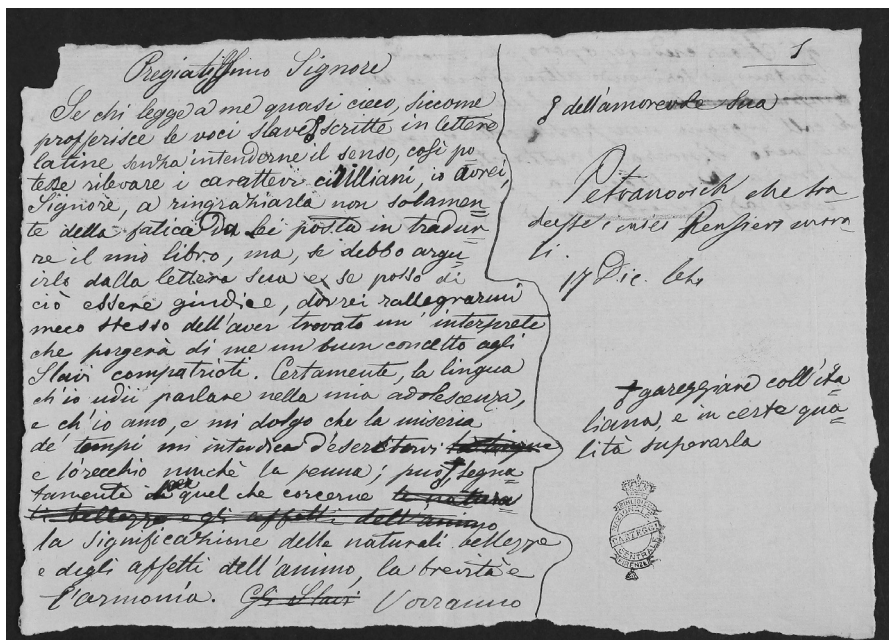 Pregiatissimo Signore
Se chi legge a me quasi cieco, siccome
profferisce le voci slave scritte in lettere
latine senza intenderne il senso, così po
tesse rilevare i caratteri cirilliani, io dovrei,
Signore, a ringraziarla non solamen=
te della fatica da Lei posta in tradur=
re il mio libro, ma, se debbo argu=
irlo dalla lettera sua e se posso di
ciò essere giudice, dovrei rallegrarmi
meco stesso dell'aver trovato un'interprete
che porgerà di me un buon concetto agli
Slavi compatrioti. Certamente, la lingua
ch'io udii parlare nella mia adolescenza,
e ch'io amo, e mi dolgo che la miseria
de' tempi mi interdica d'esercitarvi
e l'orecchio nonchè la penna; può, segna=
tamente per quel che concerne le natura
li bellezze e gli affetti dell'animo
la significazione delle naturali bellezze
e degli affetti dell'animo, la brevità e
l'armonia. Gli Slavi Vorranno
1
dell'amorevole sua
Petranovich che tra
desse i miei Pensieri mora=
li.
17 Dic.
gareggiare coll'ita
liana, e in certe qua=
lità superarla
BIBLIOTECA
NAZIONALE
CARTEGGI
CENTRALE
FIRENZE